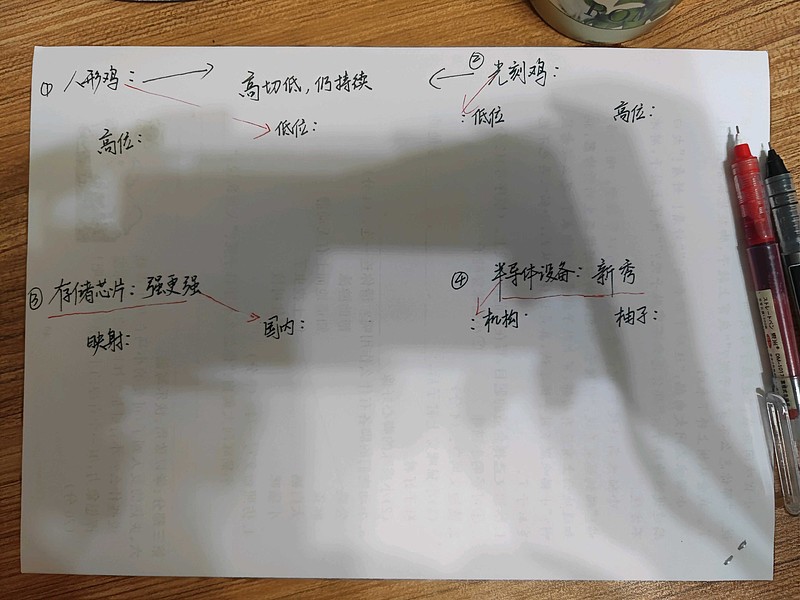 ① 人形鸡：
高切低，仍持续
② 光刻鸡：
高位：
低位：
：低位
高位：
③ 存储芯片：强更强
映射：
国内：
④ 半导体设备：新秀
：机构
柚子：